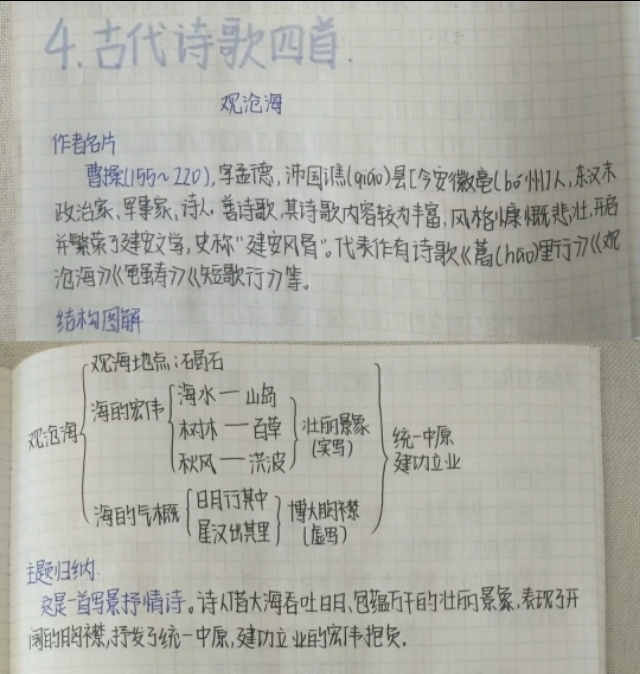 4.古代诗歌四首.
观沧海
作者名片
曹操(155~220),字孟德,沛国谯(qiáo)县[今安徽亳(bó州)]人,东汉末
政治家、军事家、诗人。善诗歌,其诗歌内容较为丰富,风格慷慨悲壮,开启
并繁荣了建安文学,史称“建安风骨”。代表作有诗歌《蒿(hāo)里行》《观
沧海》《龟虽寿》《短歌行》等。
结构图解
观海地点:碣石
海水—山岛
海的宏伟
树木—百草
壮丽景象
(实写)
观沧海
秋风—洪波
统一中原
建功立业
海的气概
日月行其中
星汉出其里
博大胸襟
(虚写)
主题归纳
这是一首写景抒情诗。诗人借大海吞吐日月、包蕴万千的壮丽景象,表现了开
阔的胸襟,抒发了统一中原,建功立业的宏伟抱负.